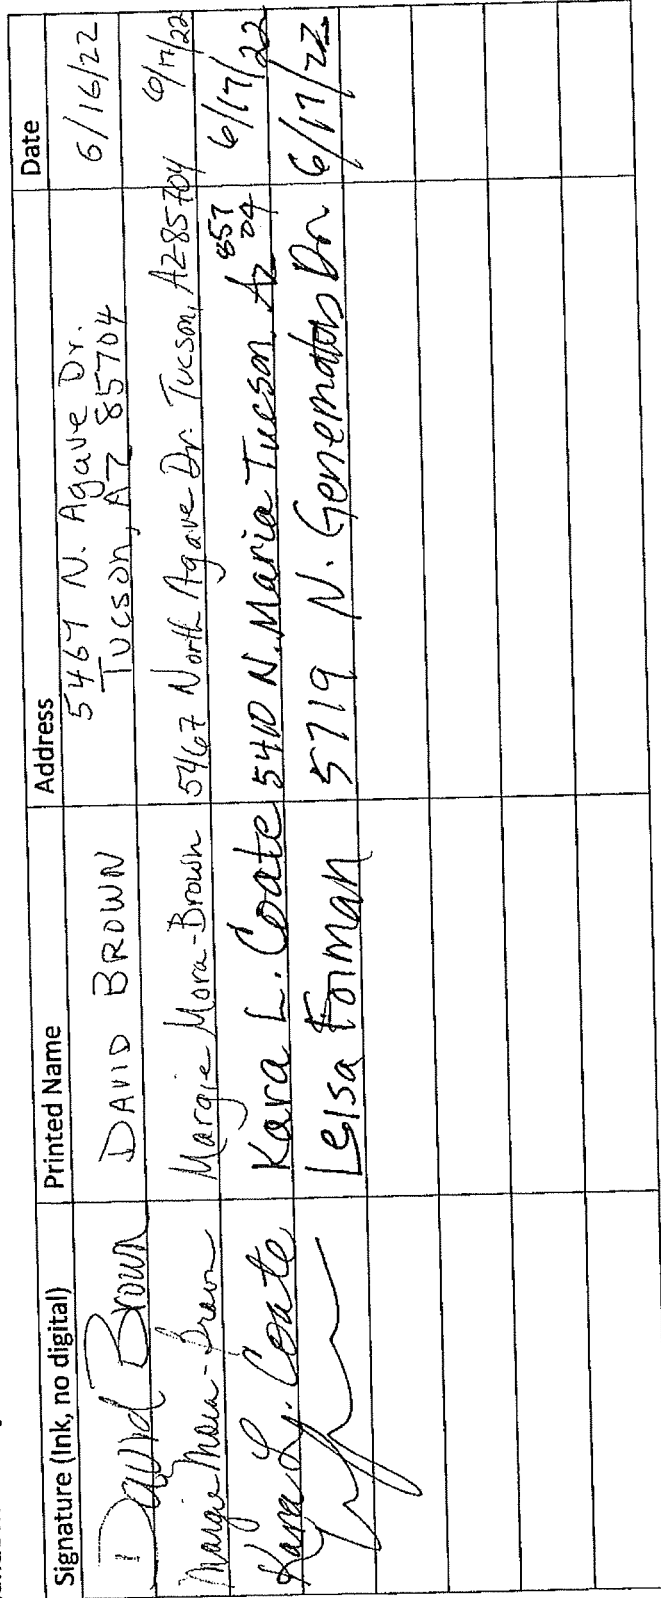 Signature (Ink, no digital) Printed Name Address Date
David Brown DAVID BROWN 5467 N. Agave Dr. 6/16/22
Tucson, AZ 85704
Margie Mora-Brown Margie Mora-Brown 5467 North Agave Dr. Tucson, AZ 85704 6/17/22
Kara L. Coate Kara L. Coate 5410 N. Maria Tucson, Az 857 6/17/22
04
Forman 5719 N. Genematas Dr 6/17/22